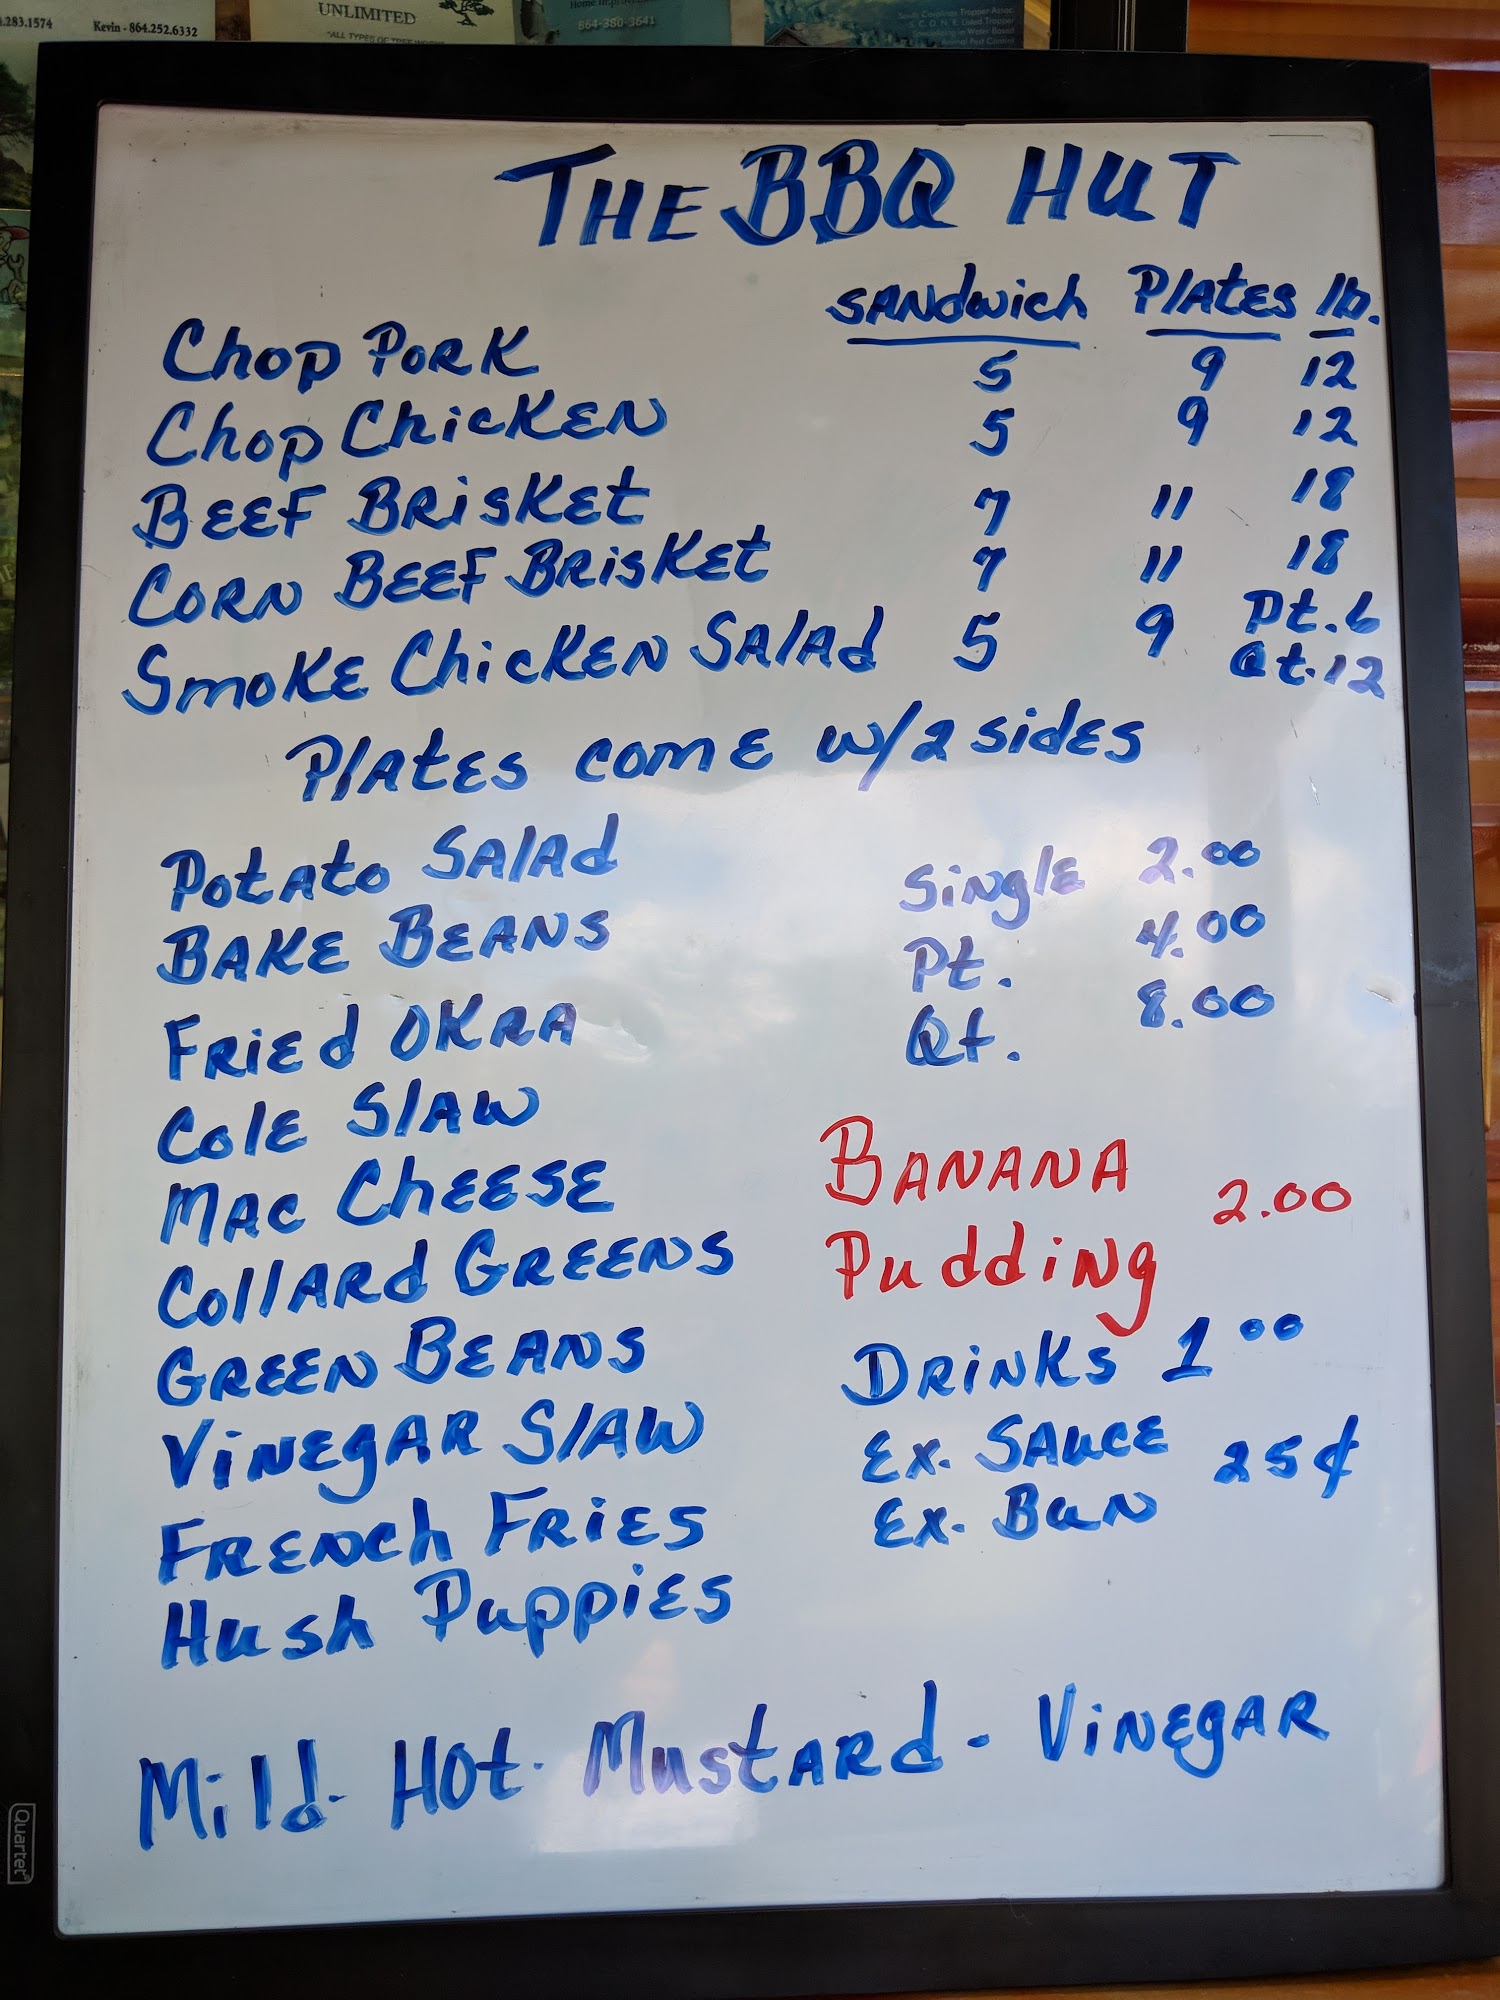 .283.1574
Kevin - 864.252.6332
UNLIMITED
"ALL TYPES OF TREE WORK"
864-380-3641
South Carolina Trapper Assoc.
Animal Pest Control
THE BBQ HUT
SANdwich PlAtES lb.
Chop PORK 5 9 12
Chop ChicKEN 5 9 12
BEEF BRisKEt 7 11 18
CORN BEEF BRisKEt 7 11 18
SmoKE ChicKEN SAlAd 5 9 Pt. 6
Qt. 12
PlAtES comE w/2 sidES
PotAto SAlAd
SiNglE 2.00
BAKE BEANS
Pt. 4.00
FRiEd OKRA
Qt. 8.00
ColE SlAW
MAC ChEESE
BANANA
PuddiNg 2.00
CollARd GREENS
GREEN BEANS
DRiNKS 1 00
ViNEgAR SlAW
Ex. SAuCE 25¢
Ex. BuN
FRENch FRiES
Hush PuppiES
Mild - Hot - MustARd - ViNEgAR
Quartet